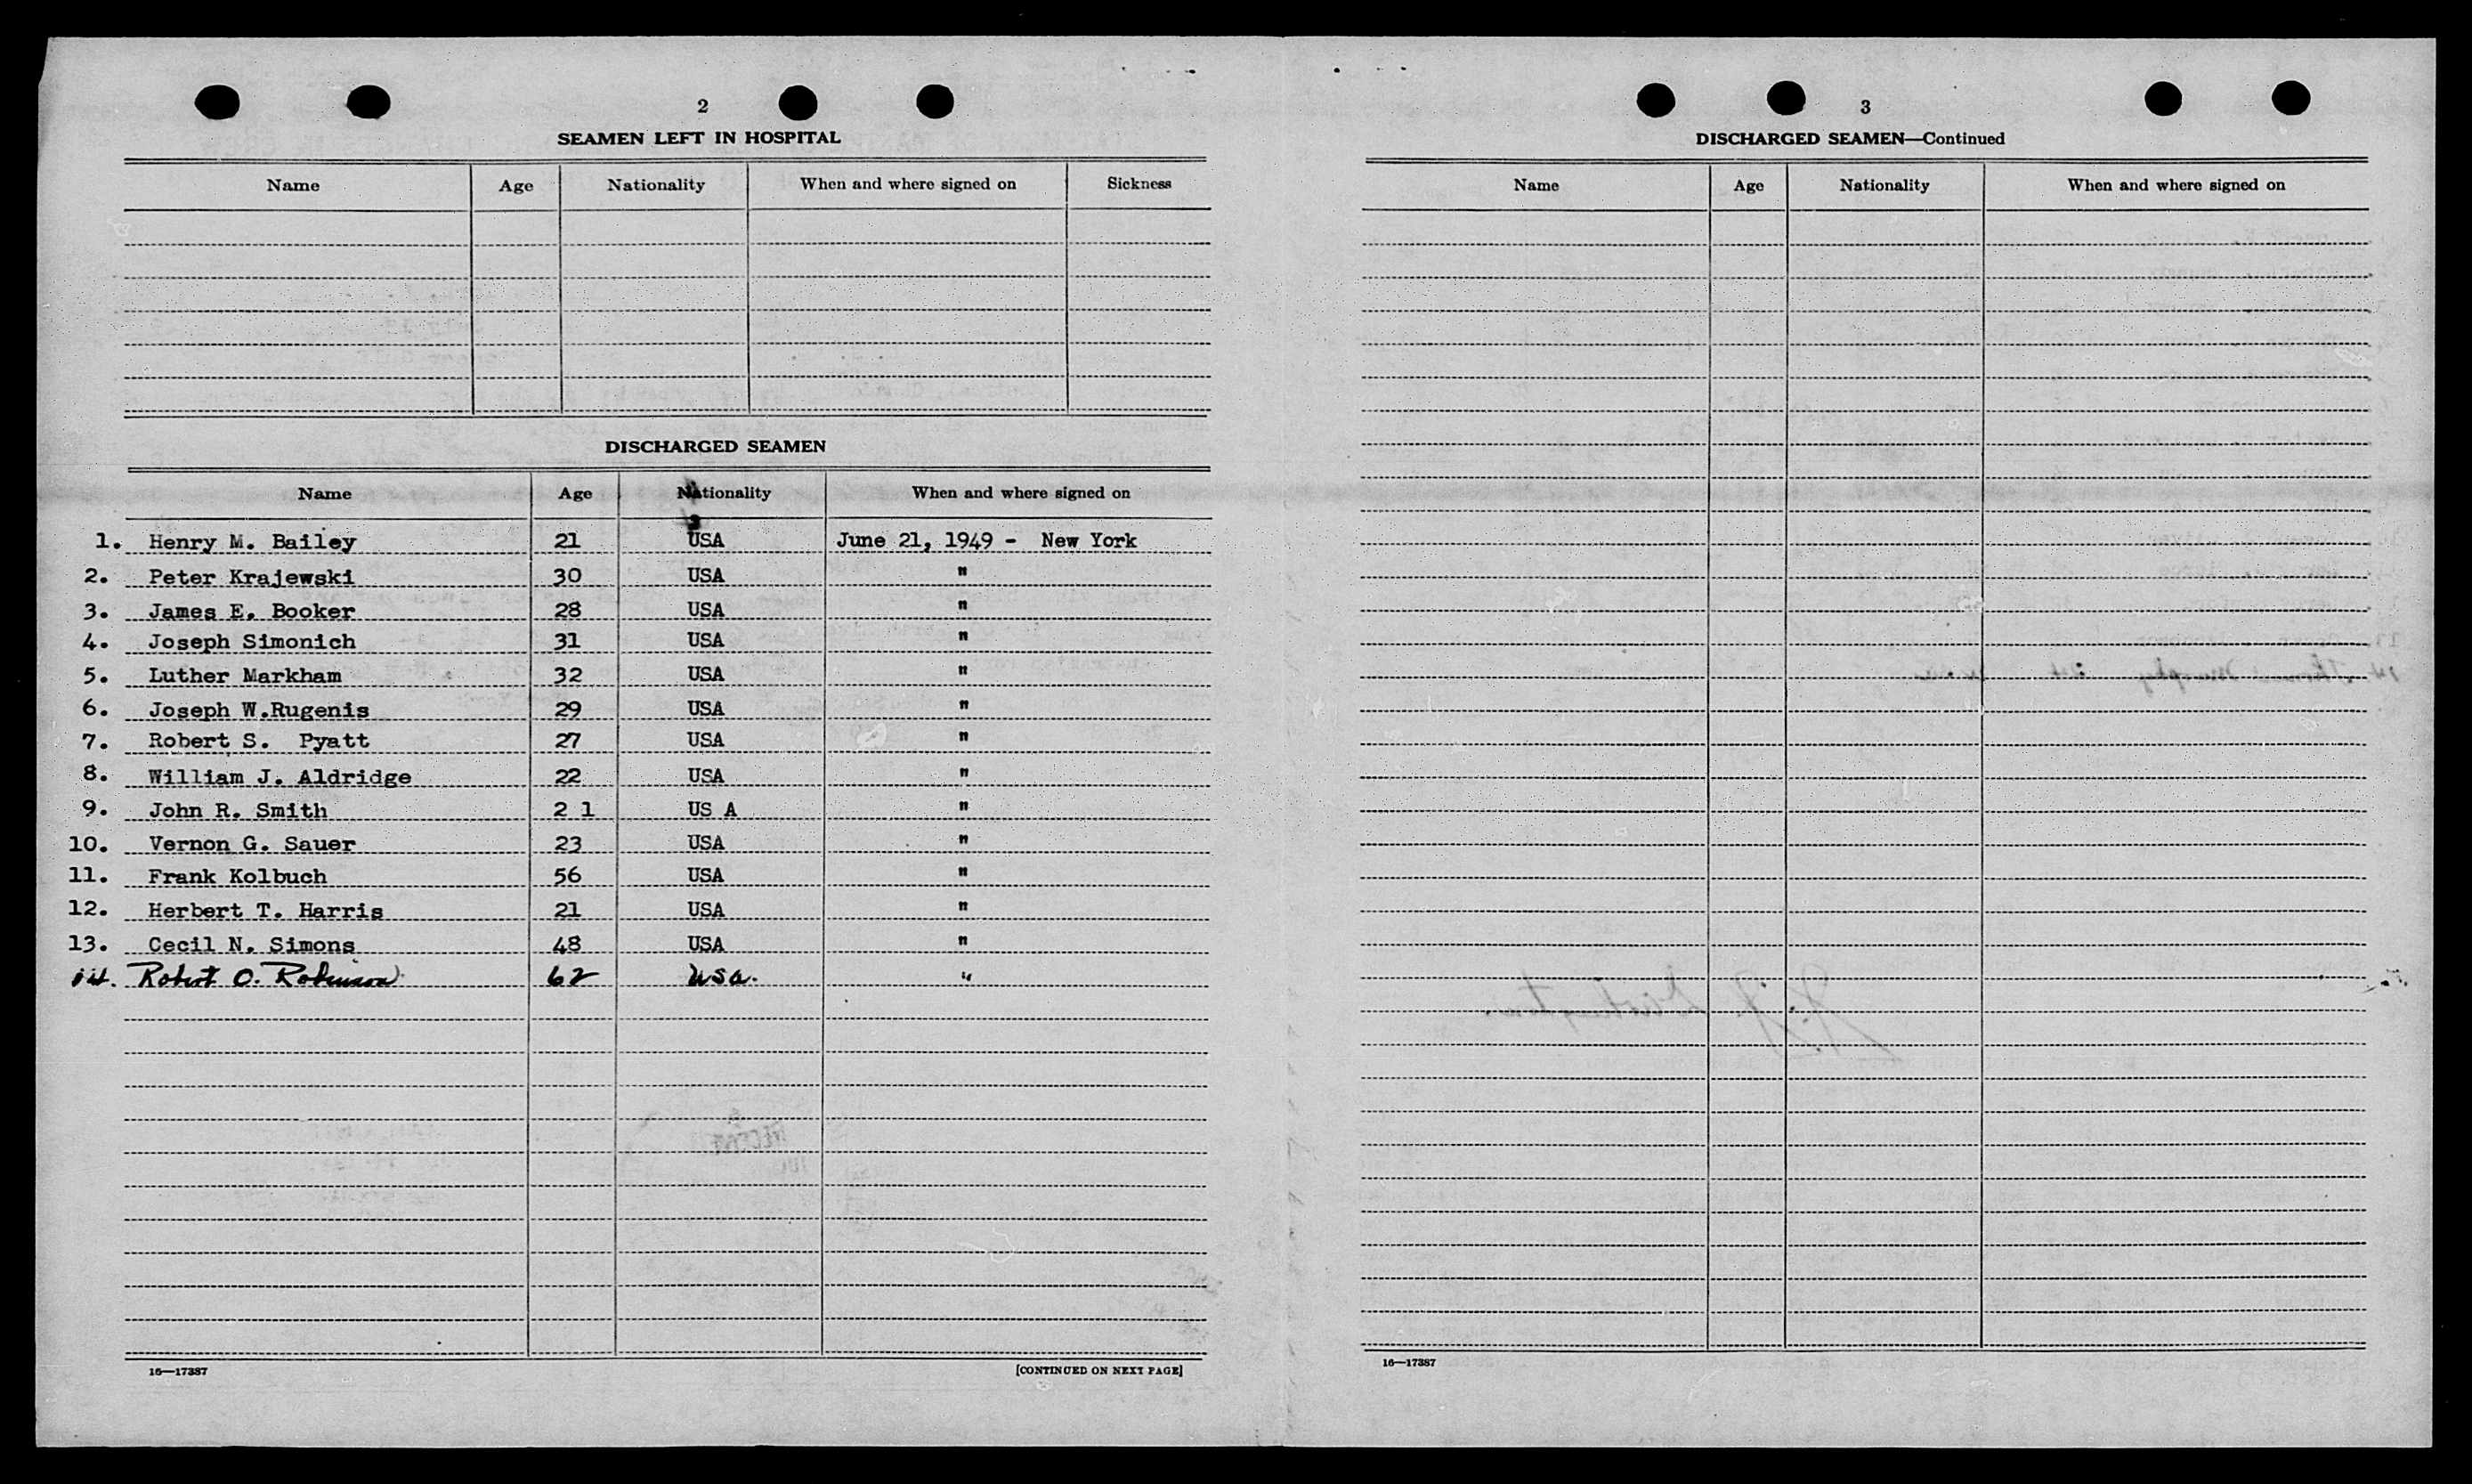 2
SEAMEN LEFT IN HOSPITAL
Name Age Nationality When and where signed on Sickness
DISCHARGED SEAMEN
Name Age Nationality When and where signed on
1. Henry M. Bailey 21 USA June 21, 1949 - New York
2. Peter Krajewski 30 USA "
3. James E. Booker 28 USA "
4. Joseph Simonich 31 USA "
5. Luther Markham 32 USA "
6. Joseph W.Rugenis 29 USA "
7. Robert S. Pyatt 27 USA "
8. William J. Aldridge 22 USA "
9. John R. Smith 2 1 US A "
10. Vernon G. Sauer 23 USA "
11. Frank Kolbuch 56 USA "
12. Herbert T. Harris 21 USA "
13. Cecil N. Simons 48 USA "
14. Robert O. Robinson 62 USA. "
16—17387 [CONTINUED ON NEXT PAGE]
3
DISCHARGED SEAMEN—Continued
Name Age Nationality When and where signed on
16—17387